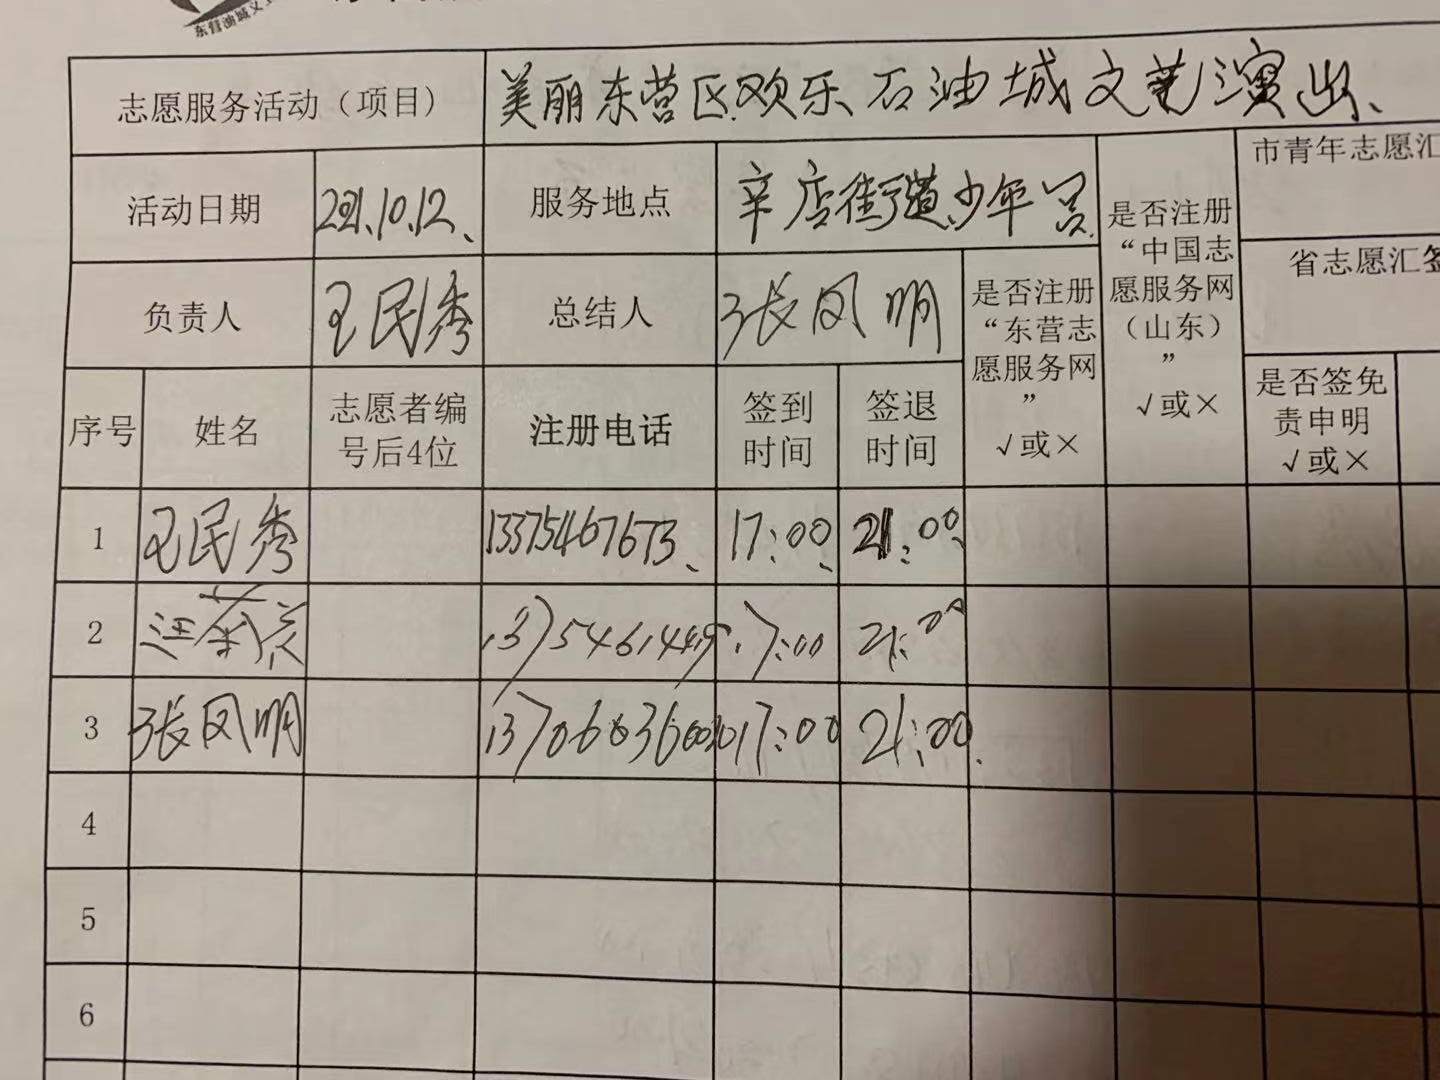 东营油城义
志愿服务活动（项目） 美丽东营区欢乐石油城文艺演出、
活动日期 2021.10.12、 服务地点 辛店街道少年宫.
是否注册“中国志愿服务网（山东）”√或×
市青年志愿汇
省志愿汇签
负责人 王民秀 总结人 张凤明
是否注册“东营志愿服务网”√或×
序号 姓名 志愿者编号后4位 注册电话 签到时间 签退时间
是否签免责申明√或×
1 王民秀 13375467673、 17:00、 21:00
2 汪 17:00 21:00
3 张凤明 17:00 21:00.
4
5
6